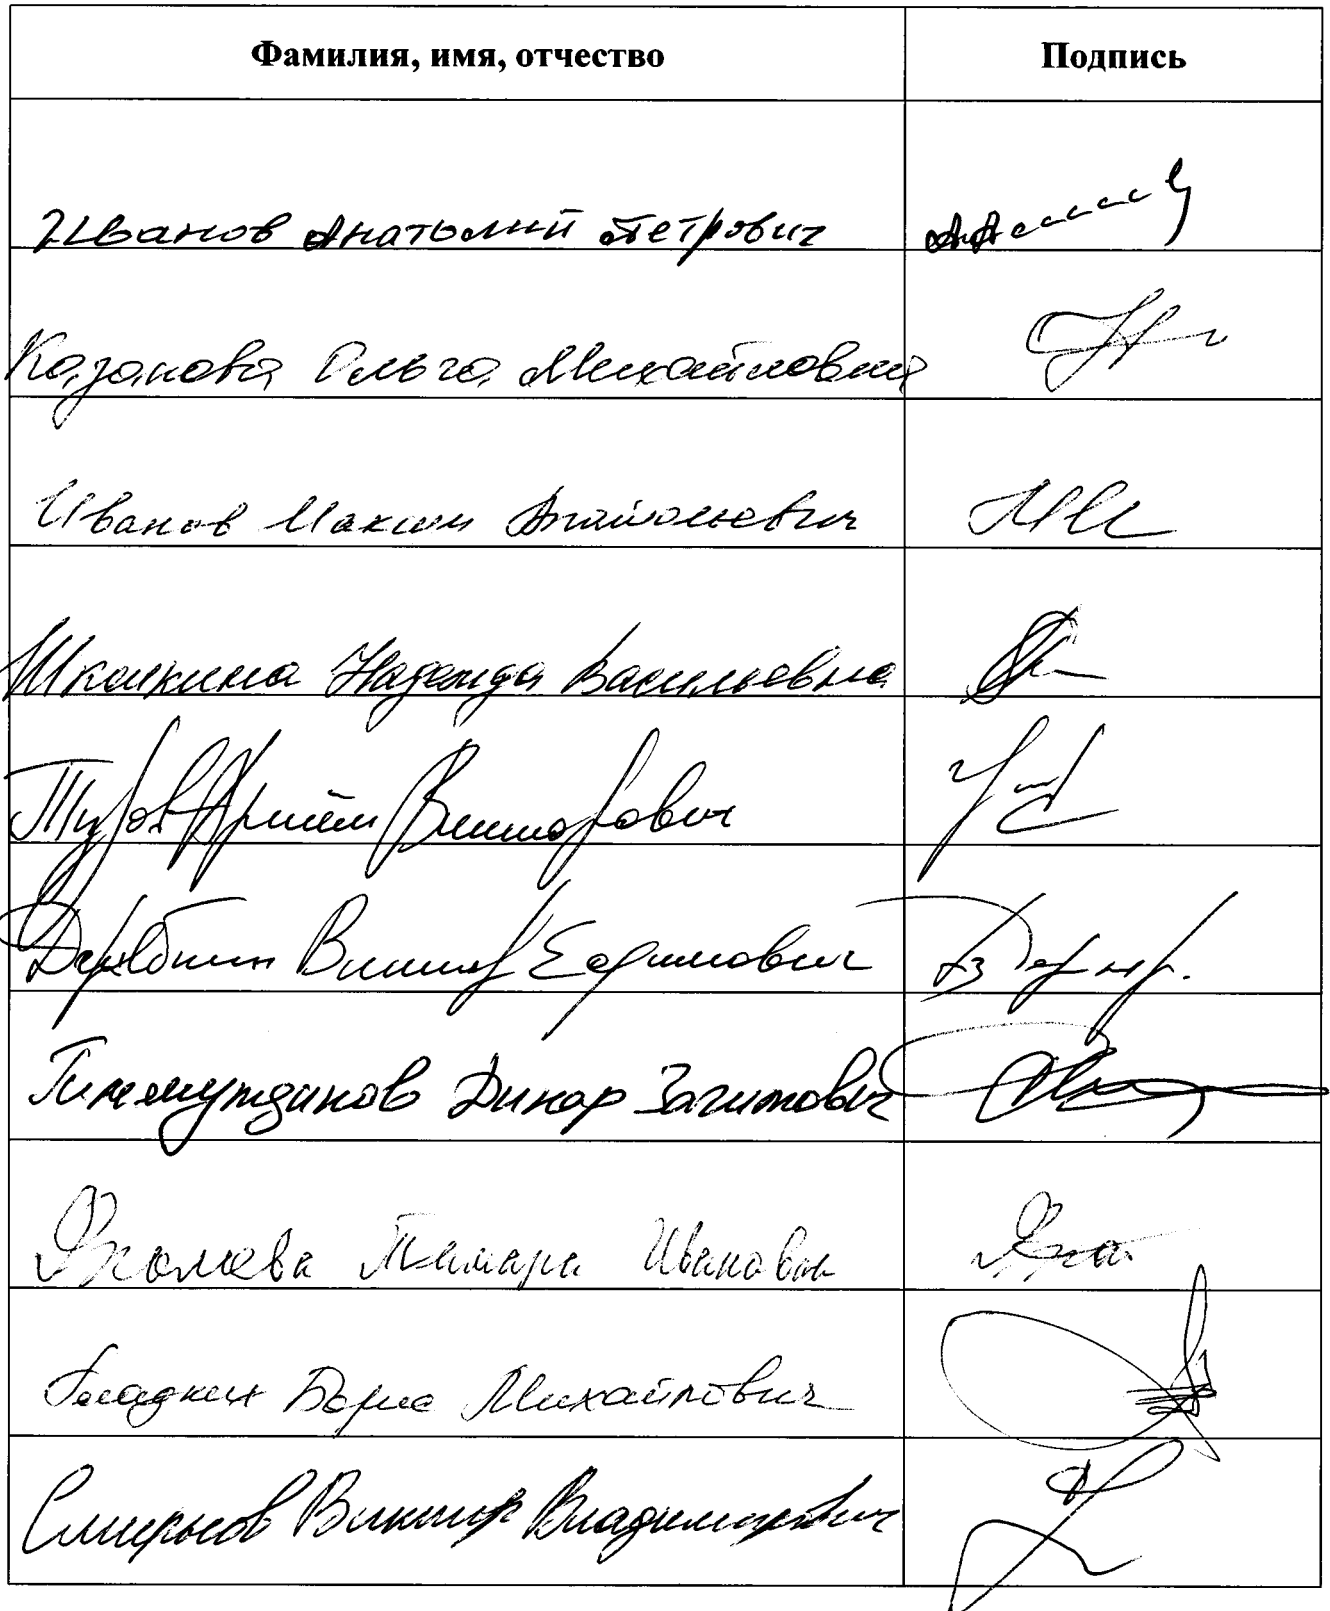 Фамилия, имя, отчество Подпись
Иванов Анатолий Петрович
Казакова Ольга Михайловна
Иванов Максим Анатольевич
Шкалкина Надежда Васильевна
Туров Артём Викторович
Виктор Ефимович
Динар Загитович
Фролова Тамара Ивановна
Гладких Борис Михайлович
Смирнов Виктор Владимирович